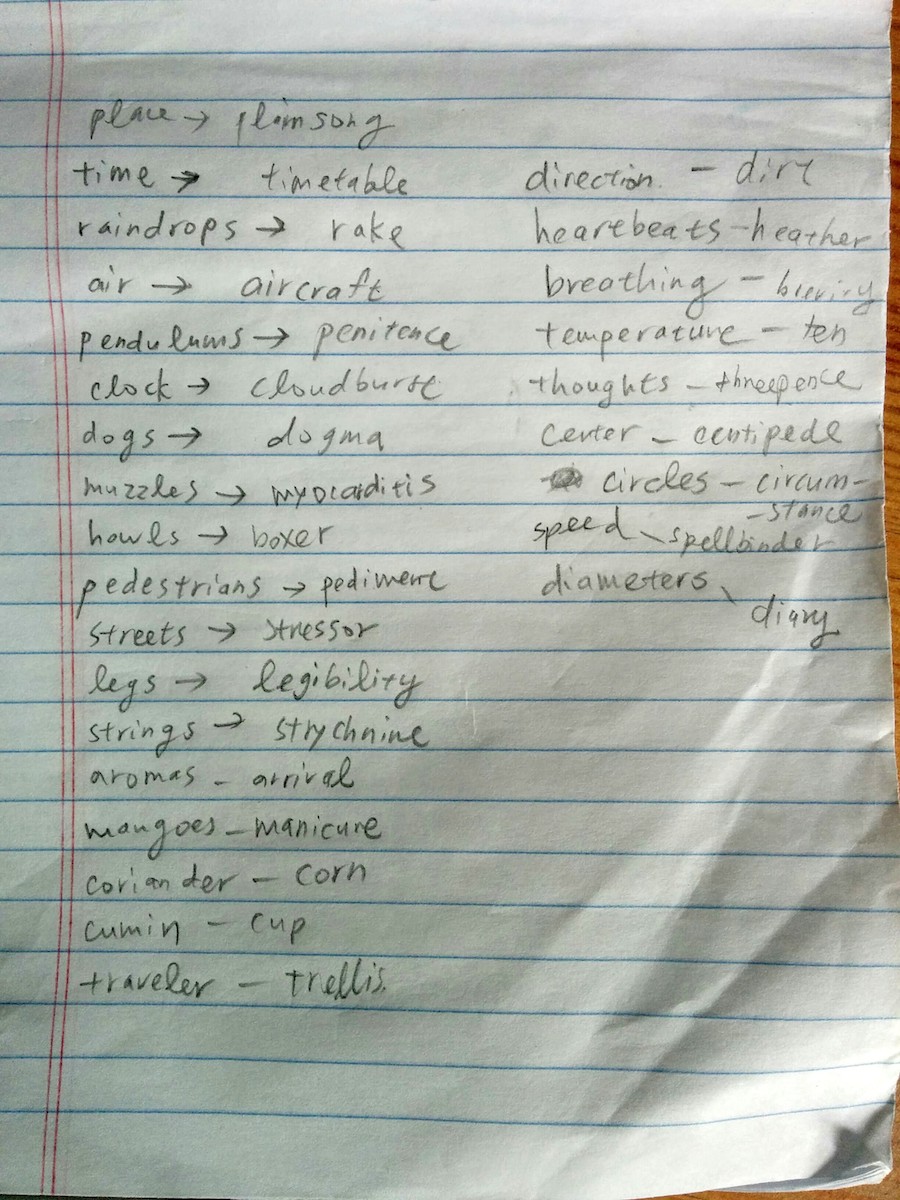 place → plainsong
time → timetable
raindrops → rake
air → aircraft
pendulums → penitence
clock → cloudburst
dogs → dogma
muzzles → myocarditis
howls → boxer
pedestrians → pediment
streets → stressor
legs → legibility
strings → strychnine
aromas - arrival
mangoes - manicure
coriander - corn
cumin - cup
traveler - trellis.
direction. - dirt
heartbeats - heather
breathing - brevity
temperature - ten
thoughts - threepence
center - centipede
circles - circum-
-stance
speed \ spellbinder
diameters \
diary